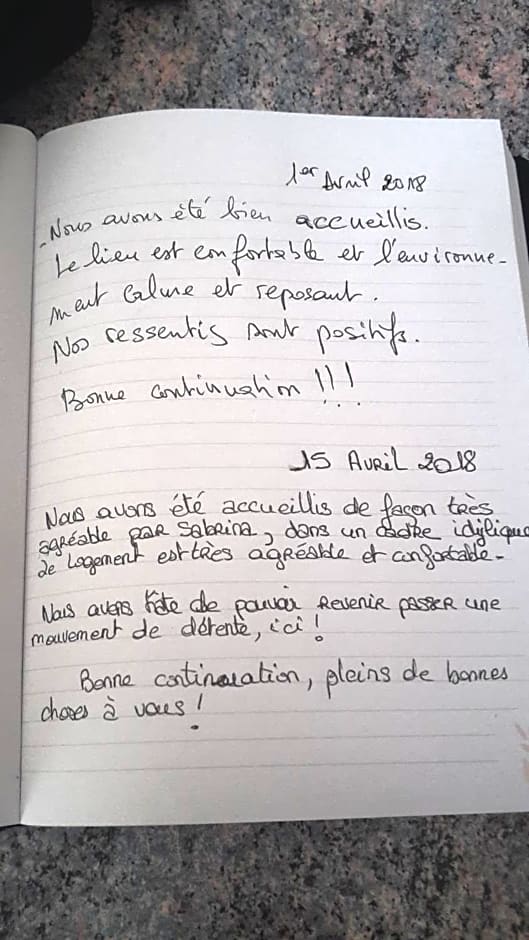 1er Avril 2018
- Nous avons été bien accueillis.
Le lieu est confortable et l'environne-
ment calme et reposant.
Nos ressentis sont positifs.
Bonne continuation !!!
15 Avril 2018
Nous avons été accueillis de façon très
agréable par Sabrina, dans un cadre idylique
Le logement est très agréable et confortable.
Nous avons hâte de pouvoir revenir passer une
mouvement de détente, ici !
Bonne continuation, pleins de bonnes
choses à vous !